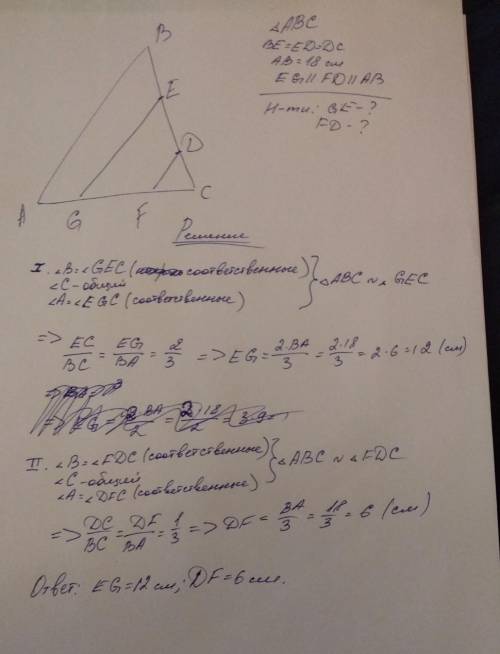 △ABC
BE=ED=DC
AB=18 см
EG || FD || AB
Н-ти: GE-?
FD-?
B
E
D
A
G
F
C
Решение
I. ∠B=∠GEC (соответственные)
∠C-общий
∠A=∠EGC (соответственные)
} △ABC ~ △GEC
=> EC/BC = EG/BA = 2/3 => EG = 2·BA/3 = 2·18/3 = 2·6=12 (см)
II. ∠B=∠FDC (соответственные)
∠C-общий
∠A=∠DFC (соответственные)
} △ABC ~ ∠FDC
=> DC/BC = DF/BA = 1/3 => DF = BA/3 = 18/3 = 6 (см)
Ответ: EG=12см; DF=6см.